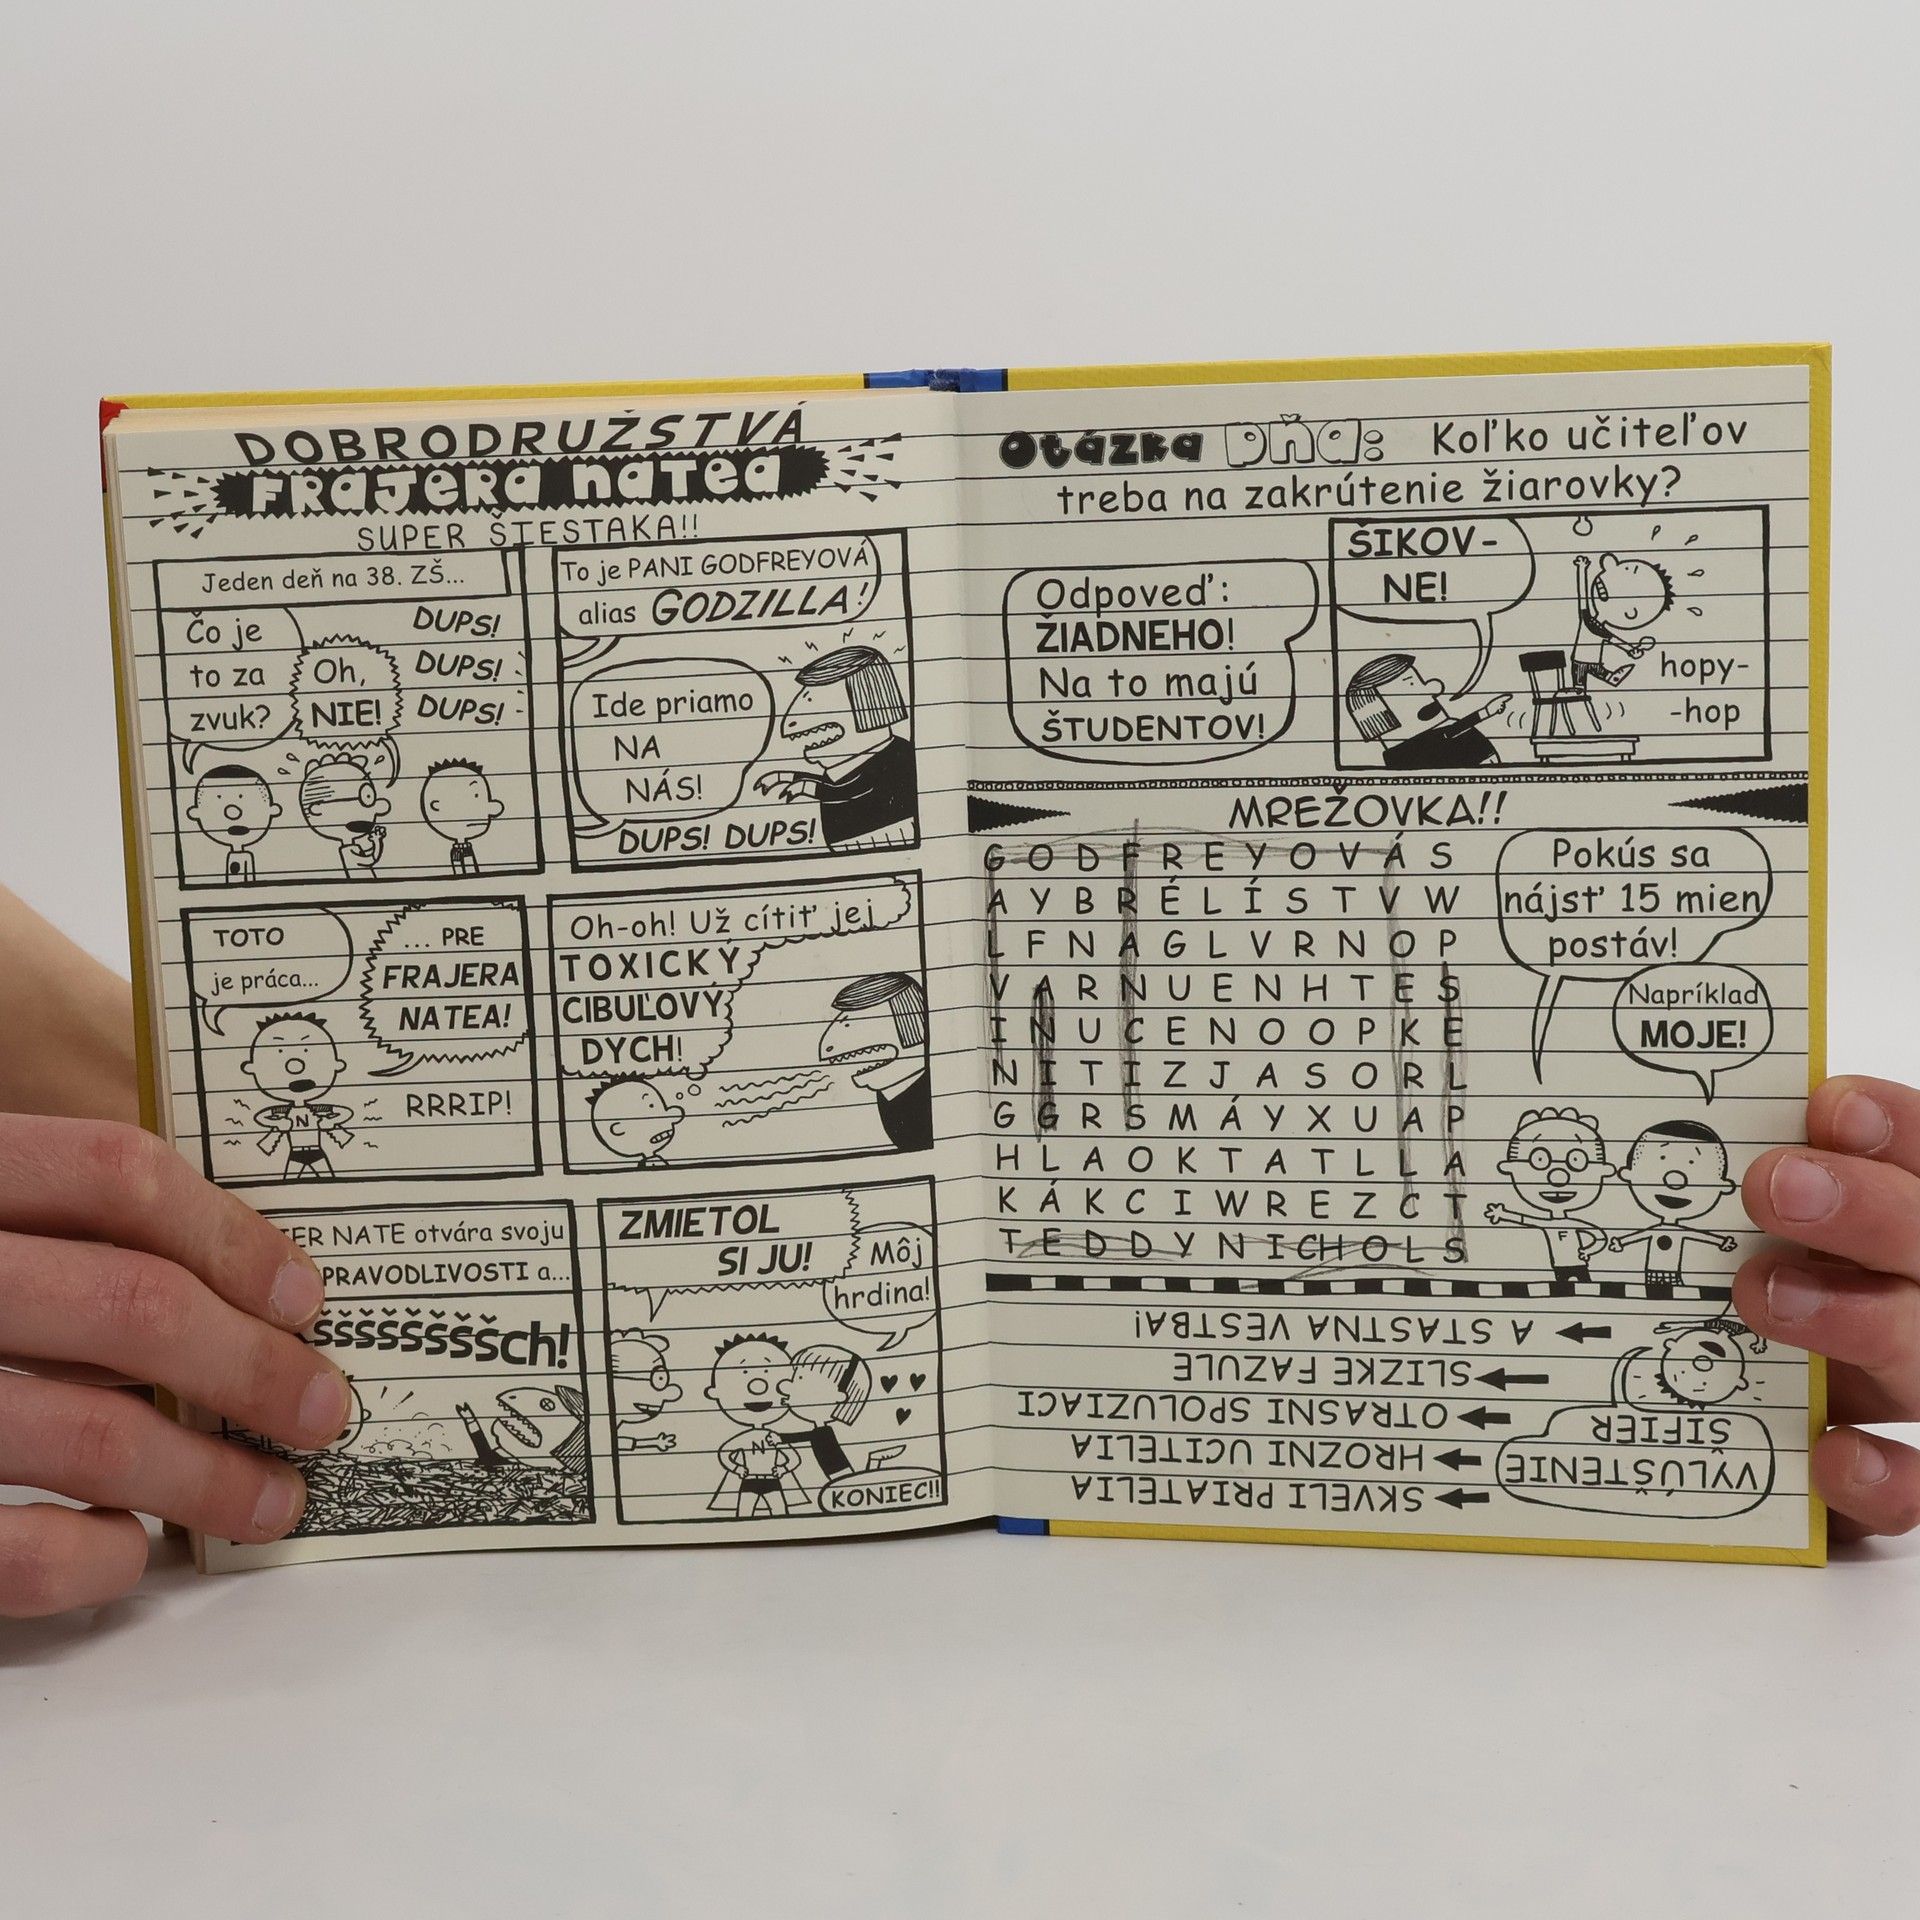 DOBRODRUŽSTVÁ
FRAJERA NATEA
SUPER ŠIESTAKA!!
Jeden deň na 38. ZŠ...
Čo je
to za
zvuk?
Oh,
NIE!
DUPS!
DUPS!
DUPS!
To je PANI GODFREYOVÁ
alias GODZILLA!
Ide priamo
NA
NÁS!
DUPS! DUPS!
TOTO
je práca...
... PRE
FRAJERA
NATEA!
RRRIP!
N
Oh-oh! Už cítiť jej
TOXICKÝ
CIBUĽOVÝ
DYCH!
ER NATE otvára svoju
PRAVODLIVOSTI a...
ŠŠŠŠŠŠŠŠch!
ZMIETOL
SI JU!
Môj
hrdina!
N
KONIEC!!
Otázka DŇa: Koľko učiteľov
treba na zakrútenie žiarovky?
Odpoveď:
ŽIADNEHO!
Na to majú
ŠTUDENTOV!
ŠIKOV-
NE!
hopy-
-hop
MREŽOVKA!!
G O D F R E Y O V Á S
A Y B R É L Í S T V W
L F N A G L V R N O P
V A R N U E N H T E S
I N U C E N O O P K E
N I T I Z J A S O R L
G G R S M Á Y X U A P
H L A O K T A T L L A
K Á K C I W R E Z C T
T E D D Y N I CH O L S
Pokús sa
nájsť 15 mien
postáv!
Napríklad
MOJE!
F
VYLÚŠTENIE
ŠIFIER
SKVELI PRIATELIA
HROZNI UCITELIA
OTRASNI SPOLUZIACI
SLIZKE FAZULE
A STASTNA VESTBA!